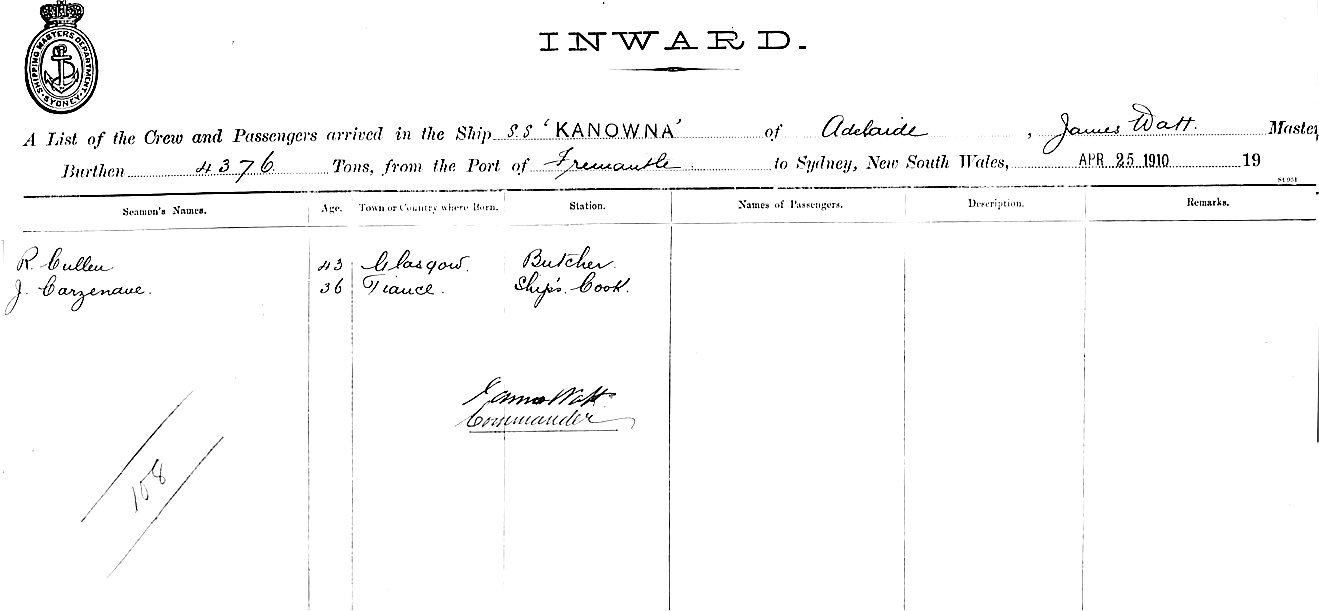 SHIPPING MASTERS DEPARTMENT SYDNEY
INWARD.
A List of the Crew and Passengers arrived in the Ship S.S 'KANOWNA' of Adelaide, James Watt. Master
Burthen 4376 Tons, from the Port of Fremantle. to Sydney, New South Wales, APR 25 1910 19
Seamen's Names. Age. Town or Country where Born. Station. Names of Passengers. Description. Remarks.
R. Cullen 43 Glasgow. Butcher.
J. Carzenave. 36 France. Ship's Cook.
James Watt
Commander
108